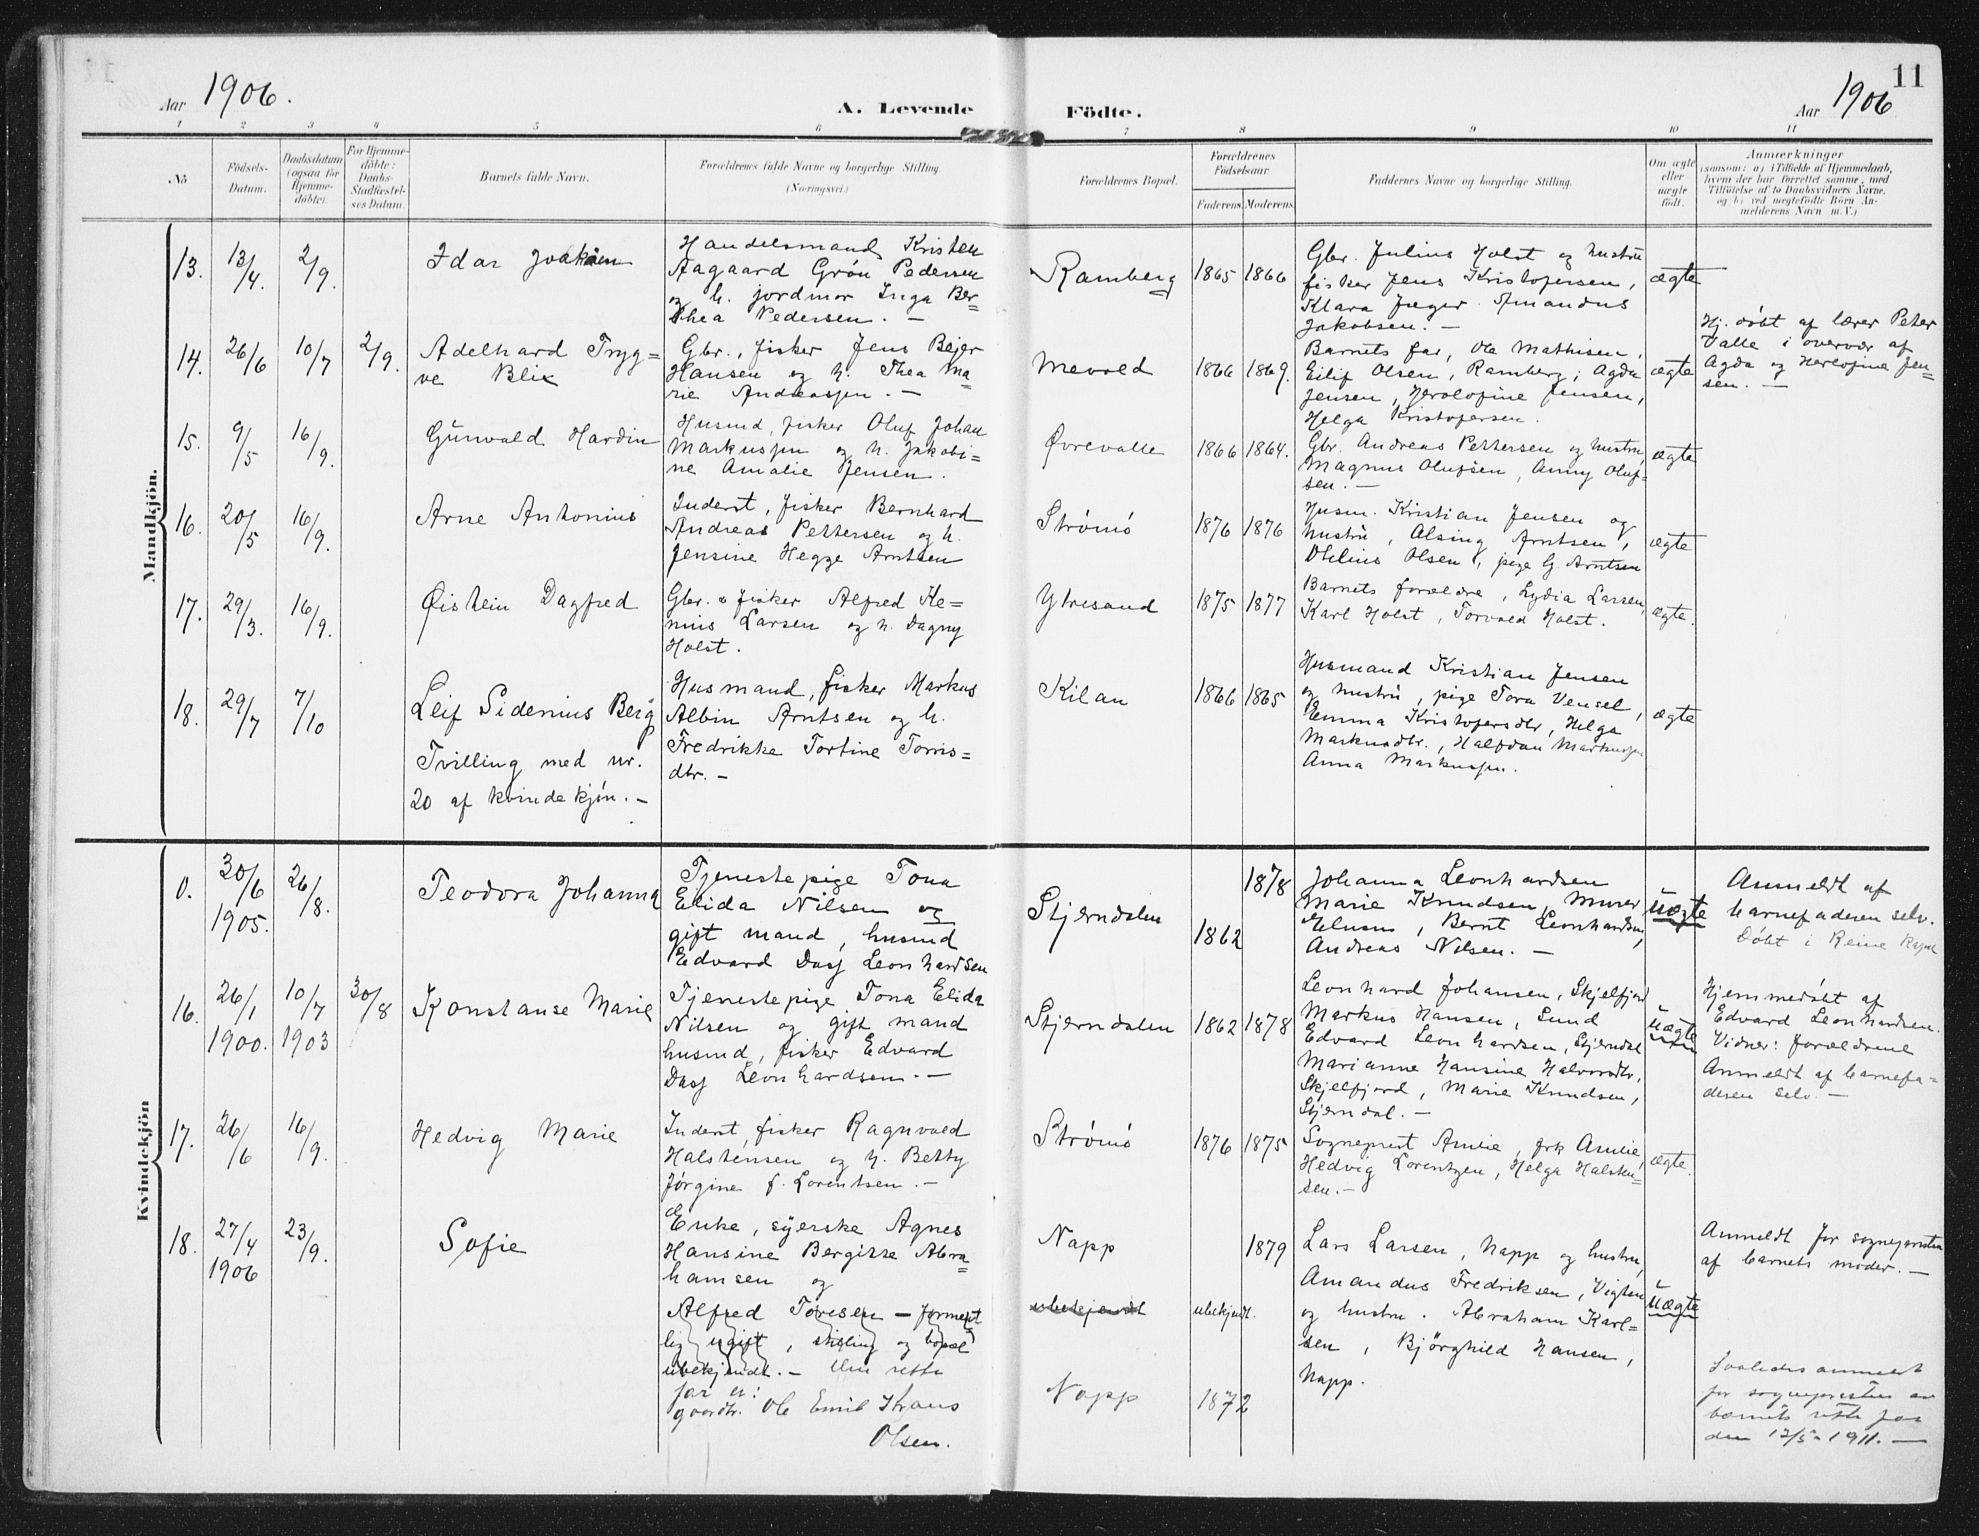 Aar 1906.
A. Levende
Födte.
Aar 1906
11
1 2 3 4 5 6 7 8 9 10 11
No
Födsels-
Datum.
Daabsdatum
(ogsaa for
Hjemme-
döbte).
For Hjemme-
döbte:
Daabs-
Stadfæstel-
ses Datum.
Barnets fulde Navn.
Forældrenes fulde Navne og borgerlige Stilling.
(Næringsvei.)
Forældrenes Bopæl.
Forældrenes
Födselsaar.
Faderens. Moderens.
Faddernes Navne og borgerlige Stilling.
Om ægte
eller
uægte
födt.
Anmærkninger
(saasom: a) i Tilfælde af Hjemmedaab,
hvem der har forrettet samme, med
Tilföielse af to Daabsvidners Navne.
og b) ved uægtefödte Börn An-
melderens Navn m.V.)
Mandkjön.
13.
13/4.
2/9.
Idar Joakim
Handelsmand Kristen
Aagaard Grön Pedersen
og h. jordmor Inga Ber=
thea Pedersen. —
Ramberg
1865 1866
Gbr. Julius Holst og hustru
fisker Jens Kristofersen,
Klara Jæger. Amandus
Jakobsen. —
ægte
14.
26/6
10/7
2/9.
Adelhard Tryg=
ve Blix
Gbr., fisker Jens Bejer
Hansen og h. Thea Ma=
rie Andreassen. —
Mevold
1866 1869.
Barnets far, Ole Mathisen,
Eilif Olsen, Ramberg; Agda
Jensen, Herlofine Jensen,
Helga Kristofersen.
ægte
Hj. döbt af lærer Peter
Valle i overvær af
Agda og Herlofine Jen=
sen. —
15.
9/5
16/9.
Gunvald Hardin
Husmd, fisker Oluf Johan
Markussen og h. Jakobi=
ne Amalie Jensen.
Øvrevalle
1866 1864.
Gbr. Andreas Pettersen og hustru,
Magnus Olufsen, Anny Oluf=
sen. —
ægte
16.
20/5
16/9.
Arne Antonius
Inderst, fisker Bernhard
Andreas Pettersen og h.
Jensine Hegge Arntsen
Strömö
1876 1876
Husm. Kristian Jensen og
hustru, Alsing Arntsen,
Olsen, pige G. Arntsen
ægte
17.
29/3.
16/9.
Øistein Dagfred
Gbr. & fisker Alfred Ke=
nius Larsen og h. Dagny
Holst.
Ytresand
1875 1877
Barnets forældre, Lydia Larsen,
Karl Holst, Torvald Holst.
ægte.
18.
29/7
7/10
Leif Sidenius Berg
Tvilling med nr.
20 af kvindekjön. —
Husmand, fisker Markus
Albin Arntsen og h.
Fredrikke Tortine Torris=
dtr. —
Kilan
1866 1865
Husmand Kristian Jensen
og hustru, pige Tora Vensel,
Emma Kristofersdtr, Helga
Markusdtr., Halfdan Markussen
Anna Markussen.
ægte
Kvindekjön
0.
30/6
1905.
26/8.
Teodora Johanna
Tjenestepige Tona
Elida Nilsen og
gift mand, husmd
Edvard Dasj Leonhardsen
Stjerndalen
1862
1878
Johanna Leonhardsen
Marie Knudsen, Murer
Bernt Leonhardsen,
Andreas Nilsen. —
Uægte
Anmeldt af
barnefaderen selv.
Döbt i Reine Kapel
16.
26/1
1900.
10/7
1903
30/8
Konstanse Marie
Tjenestepige Tona Elida
Nilsen og gift mand
husmd, fisker Edvard
Dasj Leonhardsen. —
Stjerndalen
1862 1878
Leonhard Johansen, Skjelfjord
Markus Hansen, Sund
Edvard Leonhardsen, Stjerndal
Marianne Hansine Halvorsdtr,
Skjelfjord, Marie Knudsen,
Stjerndal. —
Uægte
Hjemmedöbt af
Edvard Leonhardsen.
Vidner: forældrene
Anmeldt af barnefa=
deren selv. —
17.
26/6
16/9.
Hedvig Marie
Inderst, fisker Ragnvald
Halstensen og h. Betty
Jørgine f. Lorentsen. —
Strömö
1876 1875
Sogneprest Amlie, frk Amlie,
Hedvig Lorentzen, Helga Halsten=
sen. —
ægte.
18.
27/4
1906
23/9.
Sofie
Enke, syerske Agnes
Hansine Bergitte Abra=
hamsen og
Alfred Toresen — forment
lig ugift, stilling og bopæl
ubekjendt. — Den rette
far er:
gaardbr. Ole Emil Krans
Olsen.
Napp
ubekjendt
Napp
ubekjendt.
1872
1879
Lars Larsen, Napp og hustru,
Amandus Fredriksen, Vigten
og hustru. Abraham Karl=
sen, Bjørghild Hansen,
Napp.
Uægte
Anmeldt for sognepresten
af barnets moder. —
Saaledes anmeldt
for sognepresten av
barnets rette far
den 12/5 1911. —